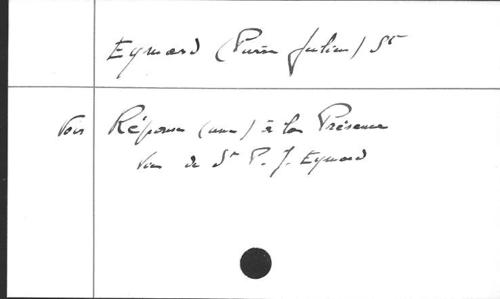 Eymard (Pierre Julien) St
Voir Réponse (une) à la Présence
Vie de St P. J. Eymard